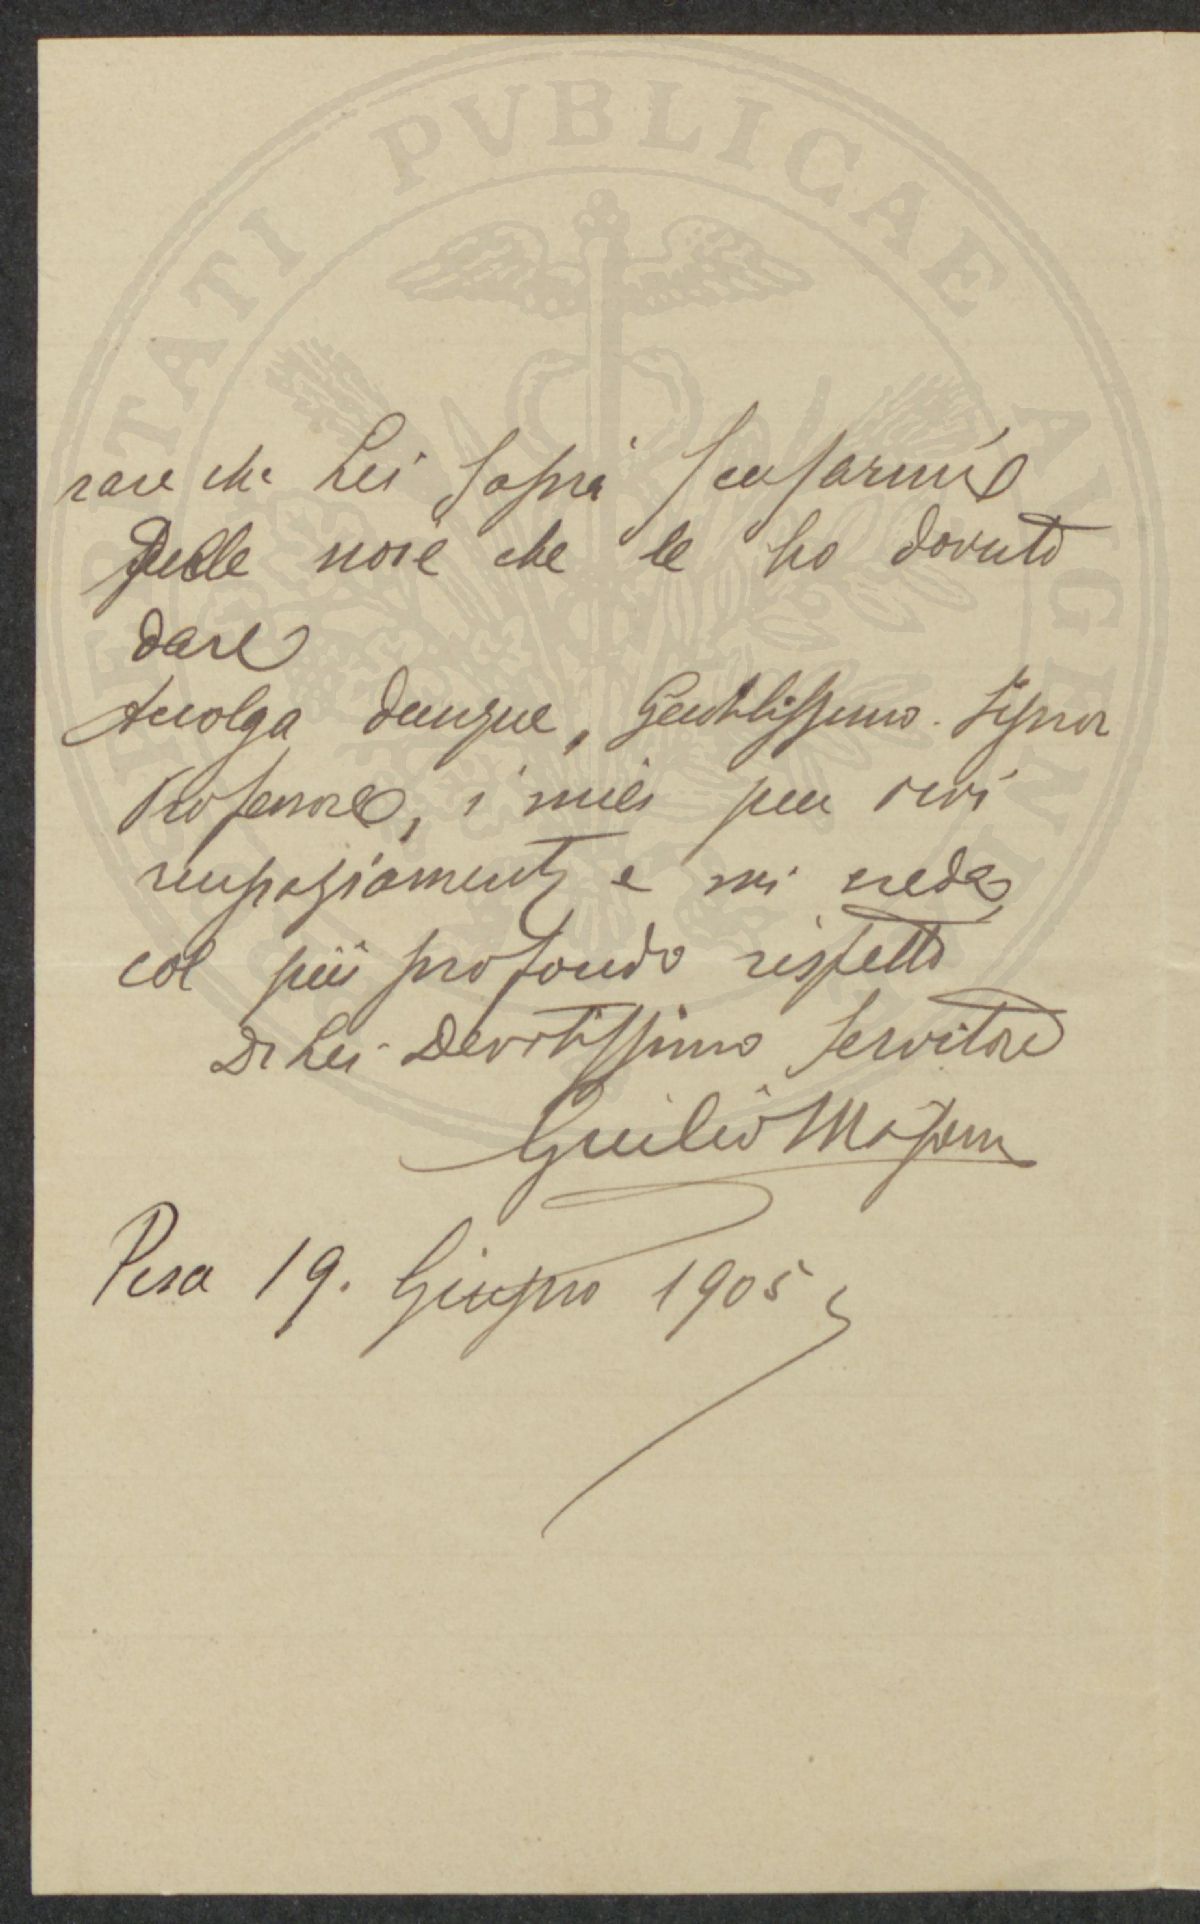 PVBLICAE
rare che Lei saprà scusarmi
delle noie che le ho dovuto
dare
Accolga dunque, Gentilissimo Signor
Professore, i miei più vivi
ringraziamenti e mi creda
col più profondo rispetto
Di Lei Devotissimo Servitore
Giulio
Pisa 19. Giugno 1905